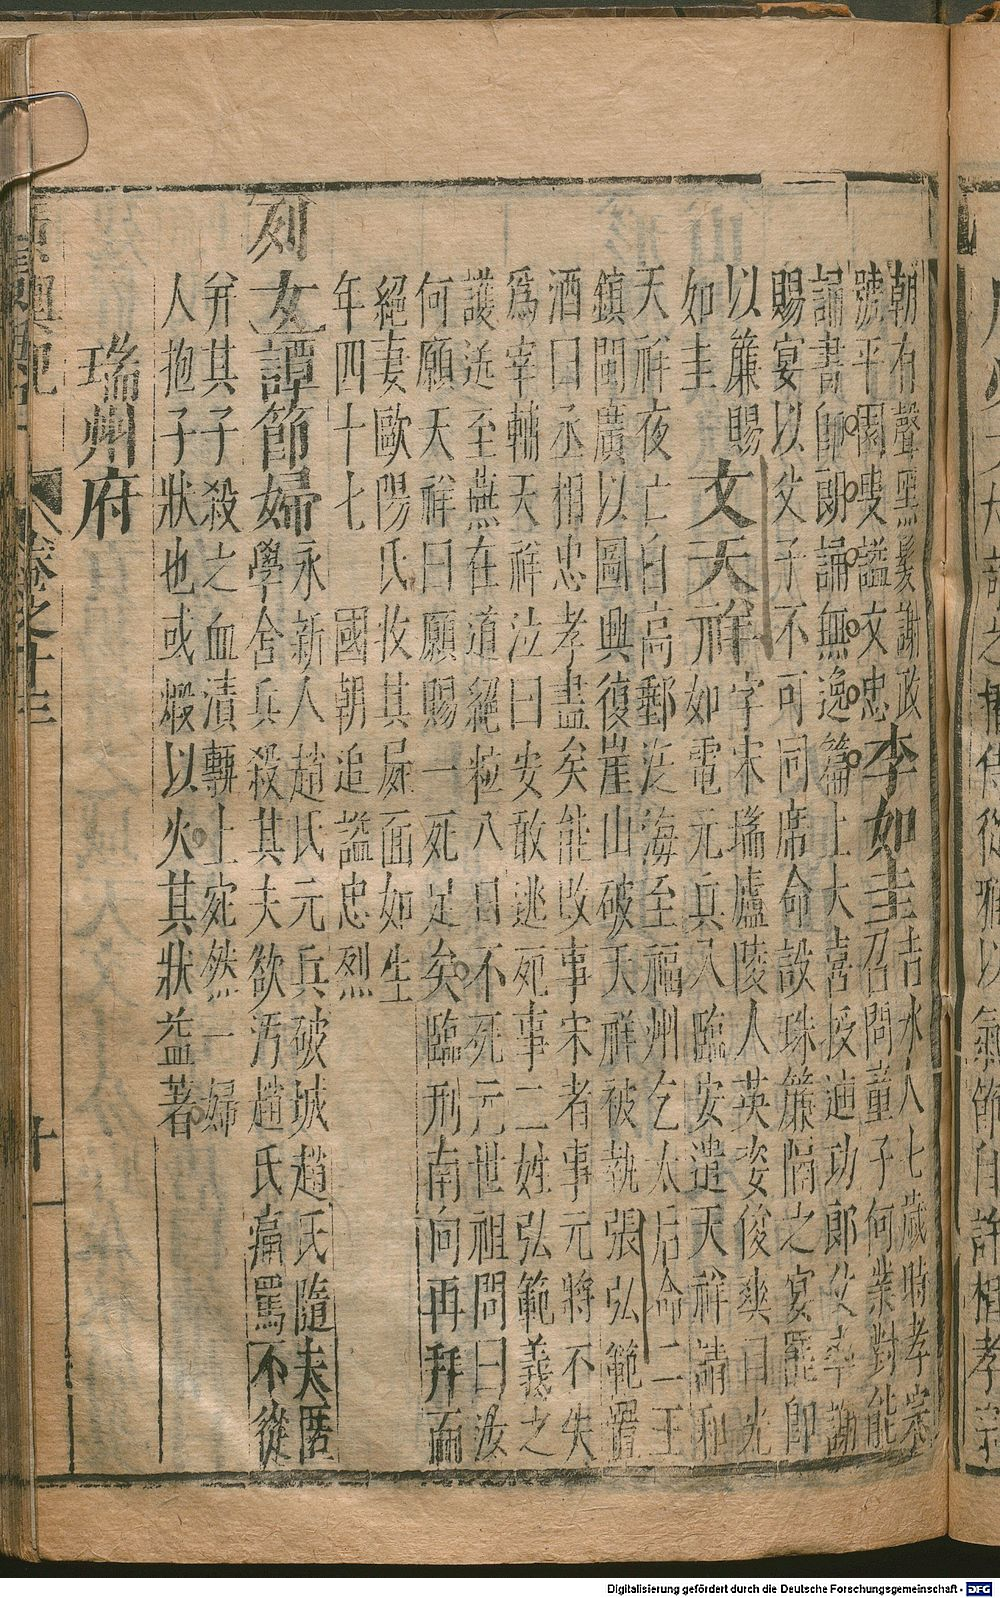 朝有聲聖焉髮謝政
號平園叟謚文忠李如圭吉水人七歲時孝宗
召問童子何業對能
誦書郎朗誦無逸篇上大喜授迪功郎及率謝
賜宴以父子不可同席命設珠簾隔之宴罷即
以簾賜
如圭文天祥字宋瑞廬陵人英姿俊爽目光
如電元兵入臨安遣天祥請和
天祥夜亡自高郵泛海至福州乞太后命二王
鎮閩廣以圖興復崖山破天祥被執張弘範置
酒曰丞相忠孝盡矣能改事宋者事元將不失
爲宰輔天祥泣曰安敢逃死事二姓弘範義之
護送至燕在道絕粒八日不死元世祖問曰汝
何願天祥曰願賜一死足矣臨刑南向再拜而
絕妻歐陽氏收其屍面如生
年四十七 國朝追謚忠烈
列女譚節婦永新人趙氏元兵破城趙氏隨夫匿
學舍兵殺其夫欲汚趙氏痛罵不從
并其子殺之血漬甎上宛然一婦
人抱子狀也或煅以火其狀益著
瑞州府
卷之十三
十一
Digitalisierung gefördert durch die Deutsche Forschungsgemeinschaft - DFG